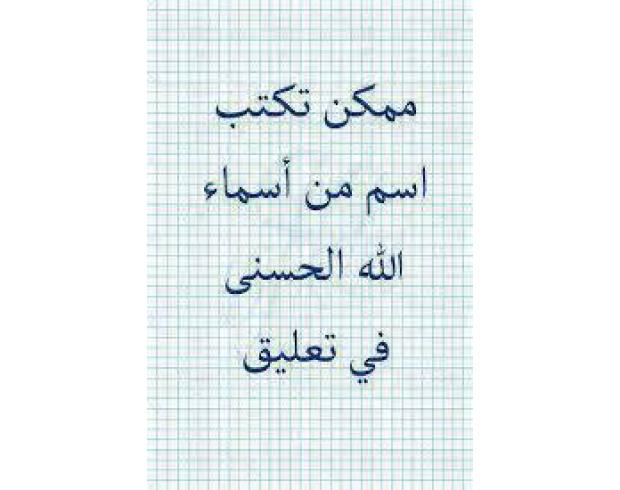 ممكن تكتب
اسم من أسماء
الله الحسنى
في تعليق